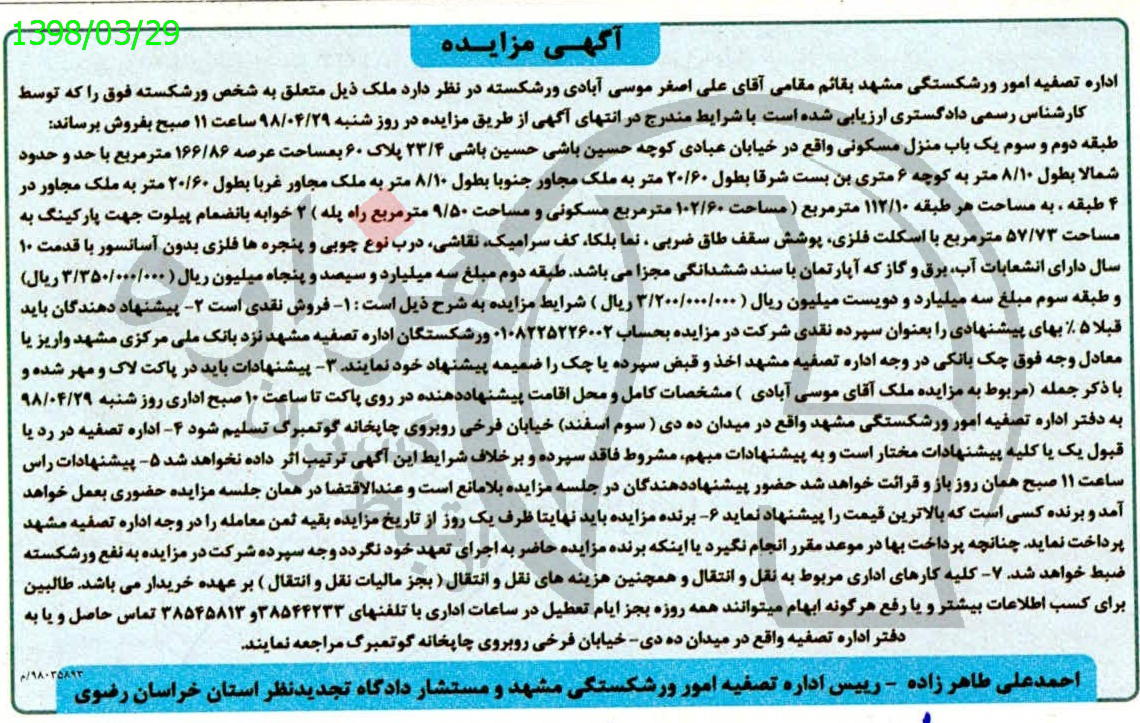 1398/03/29
آگهـی مزایـده
اداره تصفیه امور ورشکستگی مشهد بقائم مقامی آقای علی اصغر موسی آبادی ورشکسته در نظر دارد ملک ذیل متعلق به شخص ورشکسته فوق را که توسط
کارشناس رسمی دادگستری ارزیابی شده است با شرایط مندرج در انتهای آگهی از طریق مزایده در روز شنبه ۹۸/۰۴/۲۹ ساعت ۱۱ صبح بفروش برساند:
طبقه دوم و سوم یک باب منزل مسکونی واقع در خیابان عبادی کوچه حسین باشی حسین باشی ۲۳/۴ پلاک ۶۰ بمساحت عرصه ۱۶۶/۸۶ مترمربع با حد و حدود
شمالا بطول ۸/۱۰ متر به کوچه ۶ متری بن بست شرقا بطول ۲۰/۶۰ متر به ملک مجاور جنوبا بطول ۸/۱۰ متر به ملک مجاور غربا بطول ۲۰/۶۰ متر به ملک مجاور در
۴ طبقه ، به مساحت هر طبقه ۱۱۲/۱۰ مترمربع ( مساحت ۱۰۲/۶۰ مترمربع مسکونی و مساحت ۹/۵۰ مترمربع راه پله ) ۲ خوابه بانضمام پیلوت جهت پارکینگ به
مساحت ۵۷/۷۳ مترمربع با اسکلت فلزی، پوشش سقف طاق ضربی ، نما بلکا، کف سرامیک، نقاشی، درب نوع چوبی و پنجره ها فلزی بدون آسانسور با قدمت ۱۰
سال دارای انشعابات آب، برق و گاز که آپارتمان با سند ششدانگی مجزا می باشد. طبقه دوم مبلغ سه میلیارد و سیصد و پنجاه میلیون ریال ( ۳/۳۵۰/۰۰۰/۰۰۰ ریال)
و طبقه سوم مبلغ سه میلیارد و دویست میلیون ریال ( ۳/۲۰۰/۰۰۰/۰۰۰ ریال ) شرایط مزایده به شرح ذیل است : ۱- فروش نقدی است ۲- پیشنهاد دهندگان باید
قبلا ۵ ٪ بهای پیشنهادی را بعنوان سپرده نقدی شرکت در مزایده بحساب ۰۱۰۸۲۲۵۲۲۶۰۰۲ ورشکستگان اداره تصفیه مشهد نزد بانک ملی مرکزی مشهد واریز یا
معادل وجه فوق چک بانکی در وجه اداره تصفیه مشهد اخذ و قبض سپرده یا چک را ضمیمه پیشنهاد خود نمایند. ۳- پیشنهادات باید در پاکت لاک و مهر شده و
با ذکر جمله (مربوط به مزایده ملک آقای موسی آبادی ) مشخصات کامل و محل اقامت پیشنهاددهنده در روی پاکت تا ساعت ۱۰ صبح اداری روز شنبه ۹۸/۰۴/۲۹
به دفتر اداره تصفیه امور ورشکستگی مشهد واقع در میدان ده دی ( سوم اسفند) خیابان فرخی روبروی چاپخانه گوتمبرگ تسلیم شود ۴- اداره تصفیه در رد یا
قبول یک یا کلیه پیشنهادات مختار است و به پیشنهادات مبهم، مشروط فاقد سپرده و برخلاف شرایط این آگهی ترتیب اثر داده نخواهد شد ۵- پیشنهادات راس
ساعت ۱۱ صبح همان روز باز و قرائت خواهد شد حضور پیشنهاددهندگان در جلسه مزایده بلامانع است و عندالاقتضا در همان جلسه مزایده حضوری بعمل خواهد
آمد و برنده کسی است که بالاترین قیمت را پیشنهاد نماید ۶- برنده مزایده باید نهایتا ظرف یک روز از تاریخ مزایده بقیه ثمن معامله را در وجه اداره تصفیه مشهد
پرداخت نماید، چنانچه پرداخت بها در موعد مقرر انجام نگیرد یا اینکه برنده مزایده حاضر به اجرای تعهد خود نگردد وجه سپرده شرکت در مزایده به نفع ورشکسته
ضبط خواهد شد. ۷- کلیه کارهای اداری مربوط به نقل و انتقال و همچنین هزینه های نقل و انتقال ( بجز مالیات نقل و انتقال ) بر عهده خریدار می باشد. طالبین
برای کسب اطلاعات بیشتر و یا رفع هرگونه ابهام میتوانند همه روزه بجز ایام تعطیل در ساعات اداری با تلفنهای ۳۸۵۴۴۲۳۳و ۳۸۵۴۵۸۱۳ تماس حاصل و یا به
دفتر اداره تصفیه واقع در میدان ده دی- خیابان فرخی روبروی چاپخانه گوتمبرگ مراجعه نمایند.
۹۸۰۳۵۸۹۳/م
احمدعلی طاهر زاده - رییس اداره تصفیه امور ورشکستگی مشهد و مستشار دادگاه تجدیدنظر استان خراسان رضوی